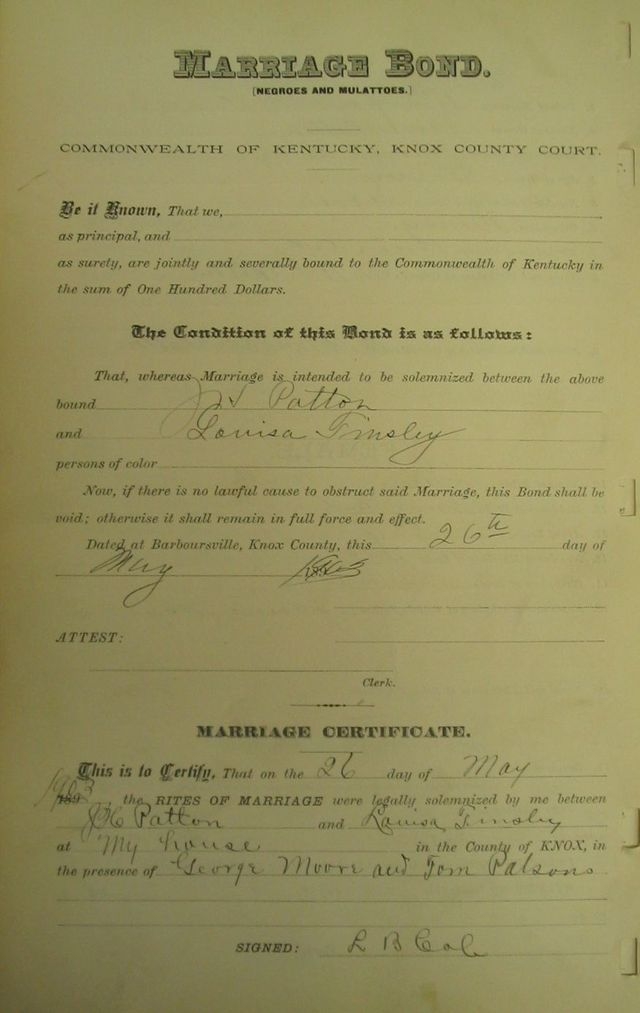 MARRIAGE BOND.
[NEGROES AND MULATTOES.]
COMMONWEALTH OF KENTUCKY, KNOX COUNTY COURT.
Be it Known, That we,
as principal, and
as surety, are jointly and severally bound to the Commonwealth of Kentucky in
the sum of One Hundred Dollars.
The Condition of this Bond is as follows:
That, whereas Marriage is intended to be solemnized between the above
bound Patton
and Louisa Tinsley
persons of color
Now, if there is no lawful cause to obstruct said Marriage, this Bond shall be
void; otherwise it shall remain in full force and effect.
Dated at Barboursville, Knox County, this 26th day of
May
ATTEST:
Clerk.
MARRIAGE CERTIFICATE.
This is to Certify, That on the 26 day of May
1903, the RITES OF MARRIAGE were legally solemnized by me between
Patton and Louisa Tinsley
at My house in the County of KNOX, in
the presence of George Moore and Tom
SIGNED: L B Cole